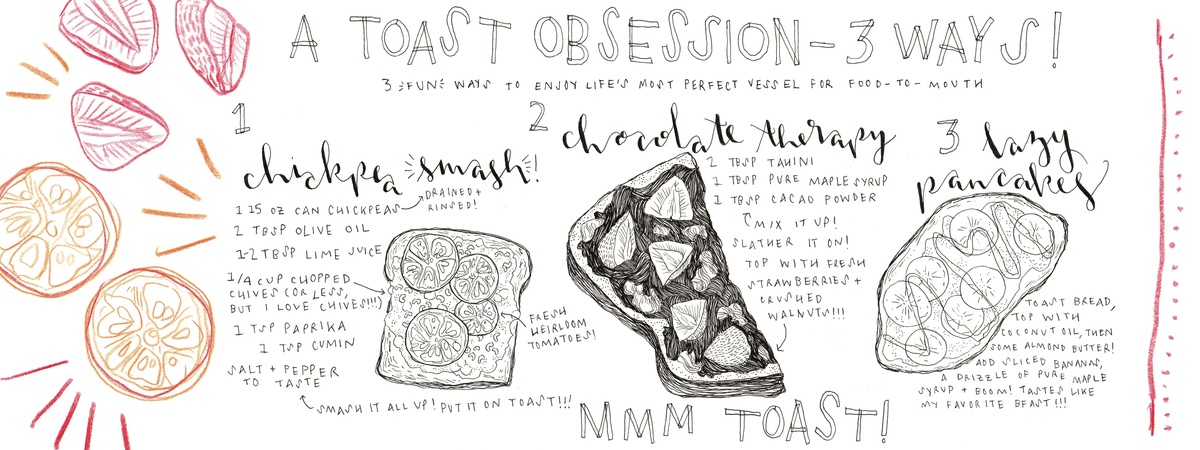 A TOAST OBSESSION - 3 WAYS!
3 FUN WAYS TO ENJOY LIFE'S MOST PERFECT VESSEL FOR FOOD-TO-MOUTH
1
chickpea smash!
1 15 OZ CAN CHICKPEAS
DRAINED +
RINSED!
2 TBSP OLIVE OIL
1-2 TBSP LIME JUICE
1/4 CUP CHOPPED
CHIVES (OR LESS,
BUT I LOVE CHIVES!!!)
1 TSP PAPRIKA
1 TSP CUMIN
SALT + PEPPER
TO TASTE
SMASH IT ALL UP! PUT IT ON TOAST!!!
FRESH
HEIRLOOM
TOMATOES!
2
chocolate therapy
2 TBSP TAHINI
1 TBSP PURE MAPLE SYRUP
1 TBSP CACAO POWDER
MIX IT UP!
SLATHER IT ON!
TOP WITH FRESH
STRAWBERRIES +
CRUSHED
WALNUTS!!!
3 lazy
pancakes
TOAST BREAD,
TOP WITH
COCONUT OIL, THEN
SOME ALMOND BUTTER!
ADD SLICED BANANAS,
A DRIZZLE OF PURE MAPLE
SYRUP + BOOM! TASTES LIKE
MY FAVORITE BFAST!!!
MMM TOAST!